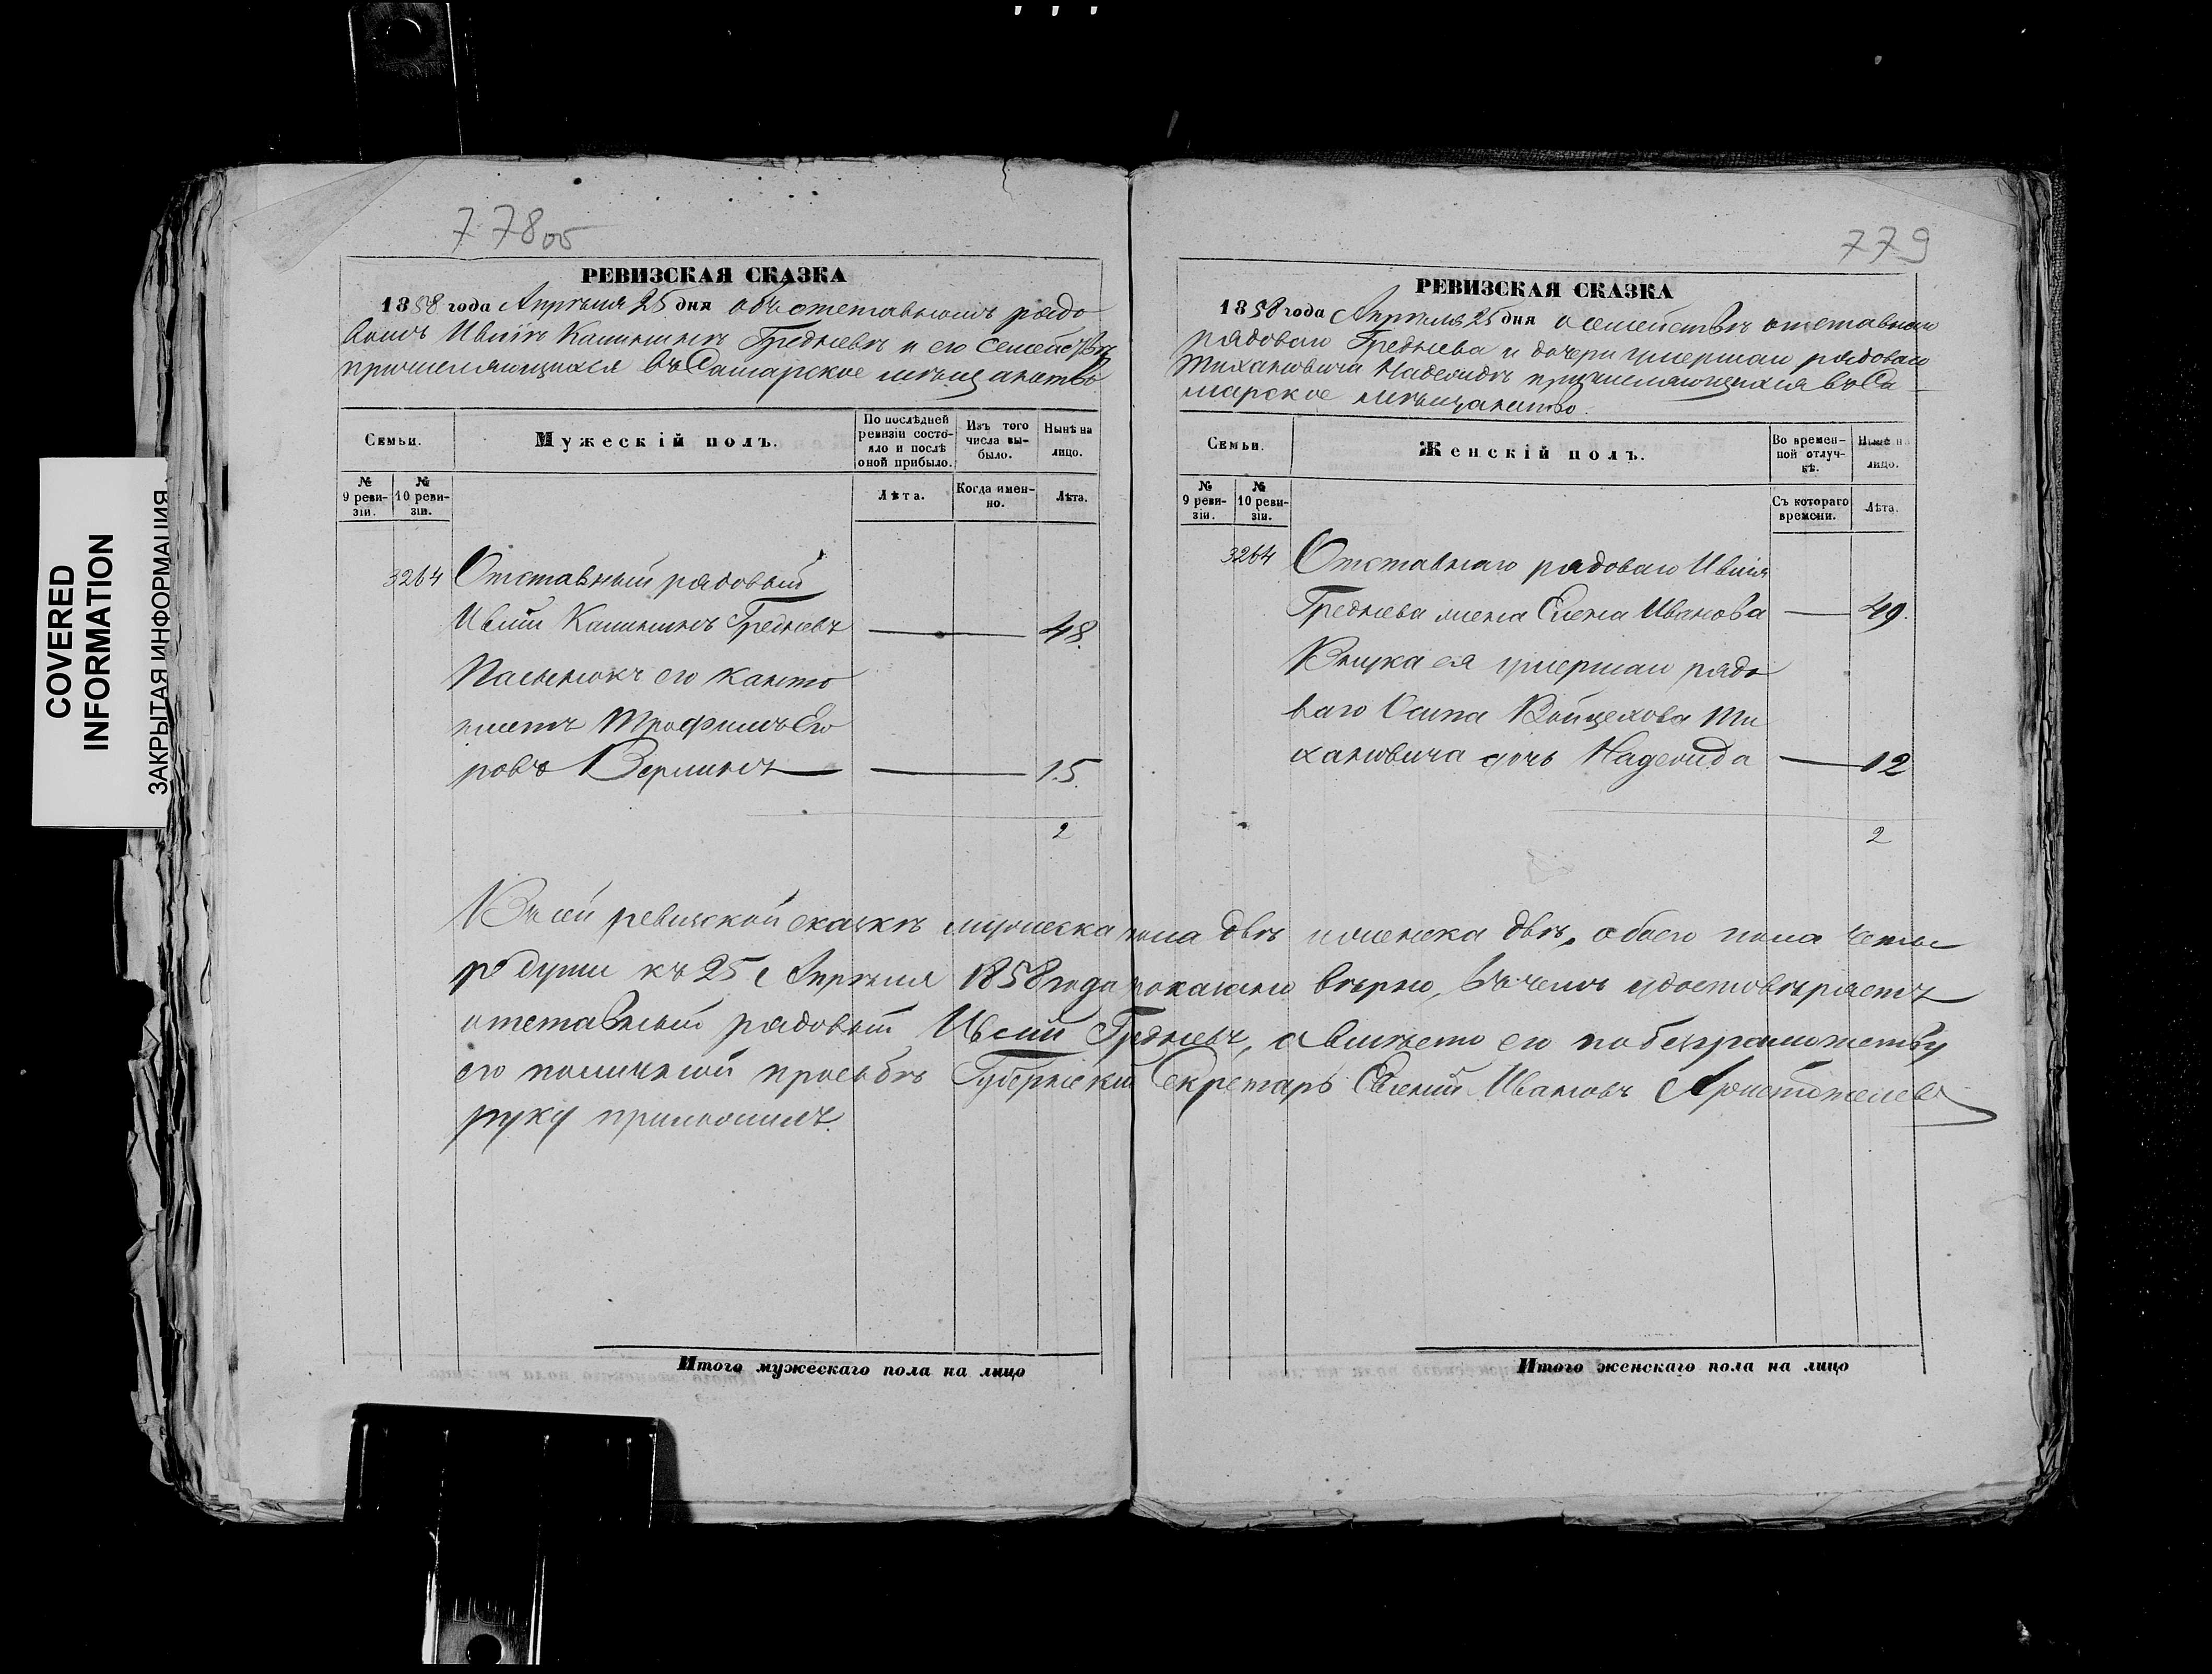 COVERED
INFORMATION
ЗАКРЫТАЯ ИНФОРМАЦИЯ
778 об
РЕВИЗСКАЯ СКАЗКА
1858 года Апрѣля 25 дня объ отставномъ рядо
вомъ Калининѣ Гредневѣ и его семействѣ
причисляющихся въ Самарское мѣщанство
Семьи.
Мужескій полъ.
По послѣдней ревизіи состояло и послѣ оной прибыло.
Изъ того числа выбыло.
Нынѣ на лицо.
№ 9 ревизіи.
№ 10 ревизіи.
Лѣта.
Когда именно.
Лѣта.
3264 Отставный рядовый
Калининъ Гредневъ 48.
Пасынокъ его канто
нистъ Трофимъ Его
ровъ 15.
2
779
РЕВИЗСКАЯ СКАЗКА
1858 года Апрѣля 25 дня о семействѣ отставнаго
рядоваго Греднева и дочери умершаго рядоваго
Михановича Надеждѣ причисляющихся въ Са
марское мѣщанство.
Семьи.
Женскій полъ.
Во временной отлучкѣ.
Нынѣ на лицо.
№ 9 ревизіи.
№ 10 ревизіи.
Съ котораго времени.
Лѣта.
3264 Отставнаго рядоваго
Греднева жена Елена Иванова 49.
Внука ея умершаго рядо
ваго Осипа Войцехова Ми
хановича дочь Надежда 12
2
Въ сей ревизской сказкѣ мужеска пола двѣ и женска двѣ, обоего пола четы
ре души къ 25 Апрѣля 1858 года показано вѣрно, въ чемъ удостовѣряетъ
отставный рядовый Гредневъ, а вмѣсто его по безграмотству
его по личной просьбѣ Губернскій Секретарь Евгеній Ивановъ
руку приложилъ.
Итого мужескаго пола на лицо
Итого женскаго пола на лицо